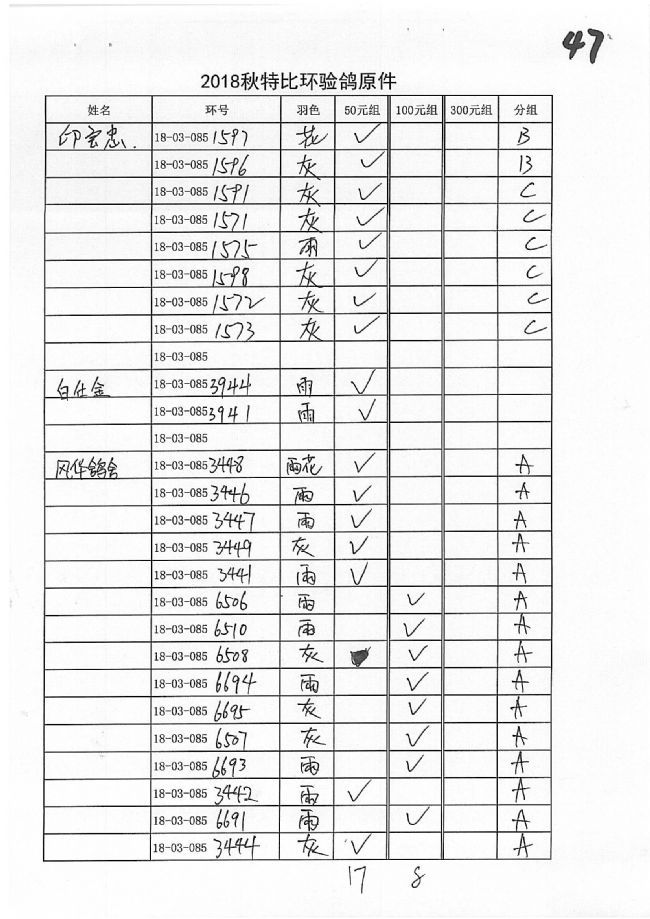 47
2018秋特比环验鸽原件
姓名 环号 羽色 50元组 100元组 300元组 分组
印宝忠. 18-03-085 1597 花 ✓ B
18-03-085 1596 灰 ✓ B
18-03-085 1591 灰 ✓ C
18-03-085 1571 灰 ✓ C
18-03-085 1575 雨 ✓ C
18-03-085 1598 灰 ✓ C
18-03-085 1572 灰 ✓ C
18-03-085 1573 灰 ✓ C
18-03-085
白仕金 18-03-085 3944 雨 ✓
18-03-085 3941 雨 ✓
18-03-085
风华鸽舍 18-03-085 3448 雨花 ✓ A
18-03-085 3446 雨 ✓ A
18-03-085 3447 雨 ✓ A
18-03-085 3449 灰 ✓ A
18-03-085 3441 雨 ✓ A
18-03-085 6506 雨 ✓ A
18-03-085 6510 雨 ✓ A
18-03-085 6508 灰 ✓ A
18-03-085 6694 雨 ✓ A
18-03-085 6695 灰 ✓ A
18-03-085 6507 灰 ✓ A
18-03-085 6693 雨 ✓ A
18-03-085 3442 雨 ✓ A
18-03-085 6691 雨 ✓ A
18-03-085 3444 灰 ✓ A
17 8